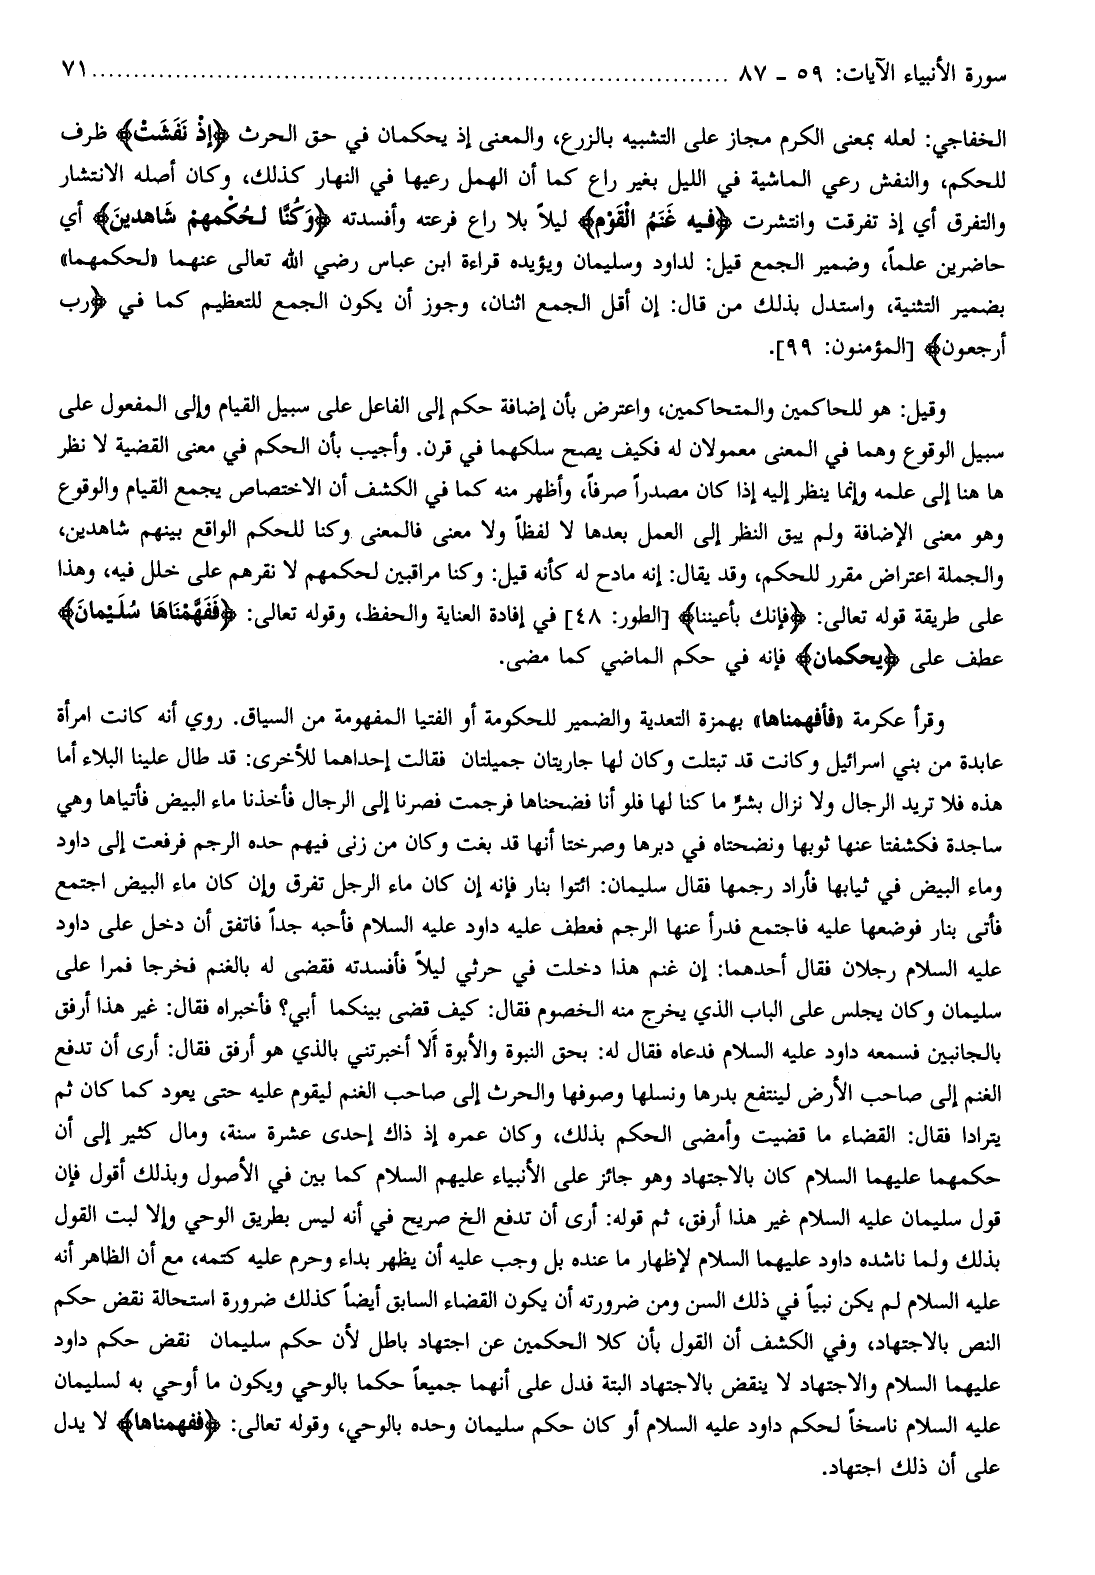 سورة الأنبياء الآيات: ٥٩ ـ ٨٧ ............................................................................ ٧١
الخفاجي: لعله بمعنى الكرم مجاز على التشبيه بالزرع، والمعنى إذ يحكمان في حق الحرث ﴿إذْ نَفَشَتْ﴾ ظرف
للحكم، والنفش رعي الماشية في الليل بغير راع كما أن الهمل رعيها في النهار كذلك، وكان أصله الانتشار
والتفرق أي إذ تفرقت وانتشرت ﴿فيه غَنَمُ الْقَوْم﴾ ليلاً بلا راع فرعته وأفسدته ﴿وَكُنَّا لحُكْمهمْ شَاهدينَ﴾ أي
حاضرين علماً، وضمير الجمع قيل: لداود وسليمان ويؤيده قراءة ابن عباس رضي الله تعالى عنهما «لحكمهما»
بضمير التثنية، واستدل بذلك من قال: إن أقل الجمع اثنان، وجوز أن يكون الجمع للتعظيم كما في ﴿رب
أرجعون﴾ [المؤمنون: ٩٩].
وقيل: هو للحاكمين والمتحاكمين، واعترض بأن إضافة حكم إلى الفاعل على سبيل القيام وإلى المفعول على
سبيل الوقوع وهما في المعنى معمولان له فكيف يصح سلكهما في قرن. وأجيب بأن الحكم في معنى القضية لا نظر
ها هنا إلى علمه وإنما ينظر إليه إذا كان مصدراً صرفاً، وأظهر منه كما في الكشف أن الاختصاص يجمع القيام والوقوع
وهو معنى الإضافة ولم يبق النظر إلى العمل بعدها لا لفظاً ولا معنى فالمعنى وكنا للحكم الواقع بينهم شاهدين،
والجملة اعتراض مقرر للحكم، وقد يقال: إنه مادح له كأنه قيل: وكنا مراقبين لحكمهم لا نقرهم على خلل فيه، وهذا
على طريقة قوله تعالى: ﴿فإنك بأعيننا﴾ [الطور: ٤٨] في إفادة العناية والحفظ، وقوله تعالى: ﴿فَفَهَّمْنَاهَا سُلَيْمانَ﴾
عطف على ﴿يحكمان﴾ فإنه في حكم الماضي كما مضى.
وقرأ عكرمة «فأفهمناها» بهمزة التعدية والضمير للحكومة أو الفتيا المفهومة من السياق. روي أنه كانت امرأة
عابدة من بني اسرائيل وكانت قد تبتلت وكان لها جاريتان جميلتان فقالت إحداهما للأخرى: قد طال علينا البلاء أما
هذه فلا تريد الرجال ولا نزال بشرٍّ ما كنا لها فلو أنا فضحناها فرجمت فصرنا إلى الرجال فأخذنا ماء البيض فأتياها وهي
ساجدة فكشفتا عنها ثوبها ونضحتاه في دبرها وصرختا أنها قد بغت وكان من زنى فيهم حده الرجم فرفعت إلى داود
وماء البيض في ثيابها فأراد رجمها فقال سليمان: ائتوا بنار فإنه إن كان ماء الرجل تفرق وإن كان ماء البيض اجتمع
فأتى بنار فوضعها عليه فاجتمع فدرأ عنها الرجم فعطف عليه داود عليه السلام فأحبه جداً فاتفق أن دخل على داود
عليه السلام رجلان فقال أحدهما: إن غنم هذا دخلت في حرثي ليلاً فأفسدته فقضى له بالغنم فخرجا فمرا على
سليمان وكان يجلس على الباب الذي يخرج منه الخصوم فقال: كيف قضى بينكما أبي؟ فأخبراه فقال: غير هذا أرفق
بالجانبين فسمعه داود عليه السلام فدعاه فقال له: بحق النبوة والأبوة أَلا أخبرتني بالذي هو أرفق فقال: أرى أن تدفع
الغنم إلى صاحب الأرض لينتفع بدرها ونسلها وصوفها والحرث إلى صاحب الغنم ليقوم عليه حتى يعود كما كان ثم
يترادا فقال: القضاء ما قضيت وأمضى الحكم بذلك، وكان عمره إذ ذاك إحدى عشرة سنة، ومال كثير إلى أن
حكمهما عليهما السلام كان بالاجتهاد وهو جائز على الأنبياء عليهم السلام كما بين في الأصول وبذلك أقول فإن
قول سليمان عليه السلام غير هذا أرفق، ثم قوله: أرى أن تدفع الخ صريح في أنه ليس بطريق الوحي وإلا لبت القول
بذلك ولما ناشده داود عليهما السلام لإظهار ما عنده بل وجب عليه أن يظهر بداء وحرم عليه كتمه، مع أن الظاهر أنه
عليه السلام لم يكن نبياً في ذلك السن ومن ضرورته أن يكون القضاء السابق أيضاً كذلك ضرورة استحالة نقض حكم
النص بالاجتهاد، وفي الكشف أن القول بأن كلا الحكمين عن اجتهاد باطل لأن حكم سليمان نقض حكم داود
عليهما السلام والاجتهاد لا ينقض بالاجتهاد البتة فدل على أنهما جميعاً حكما بالوحي ويكون ما أوحي به لسليمان
عليه السلام ناسخاً لحكم داود عليه السلام أو كان حكم سليمان وحده بالوحي، وقوله تعالى: ﴿ففهمناها﴾ لا يدل
على أن ذلك اجتهاد.